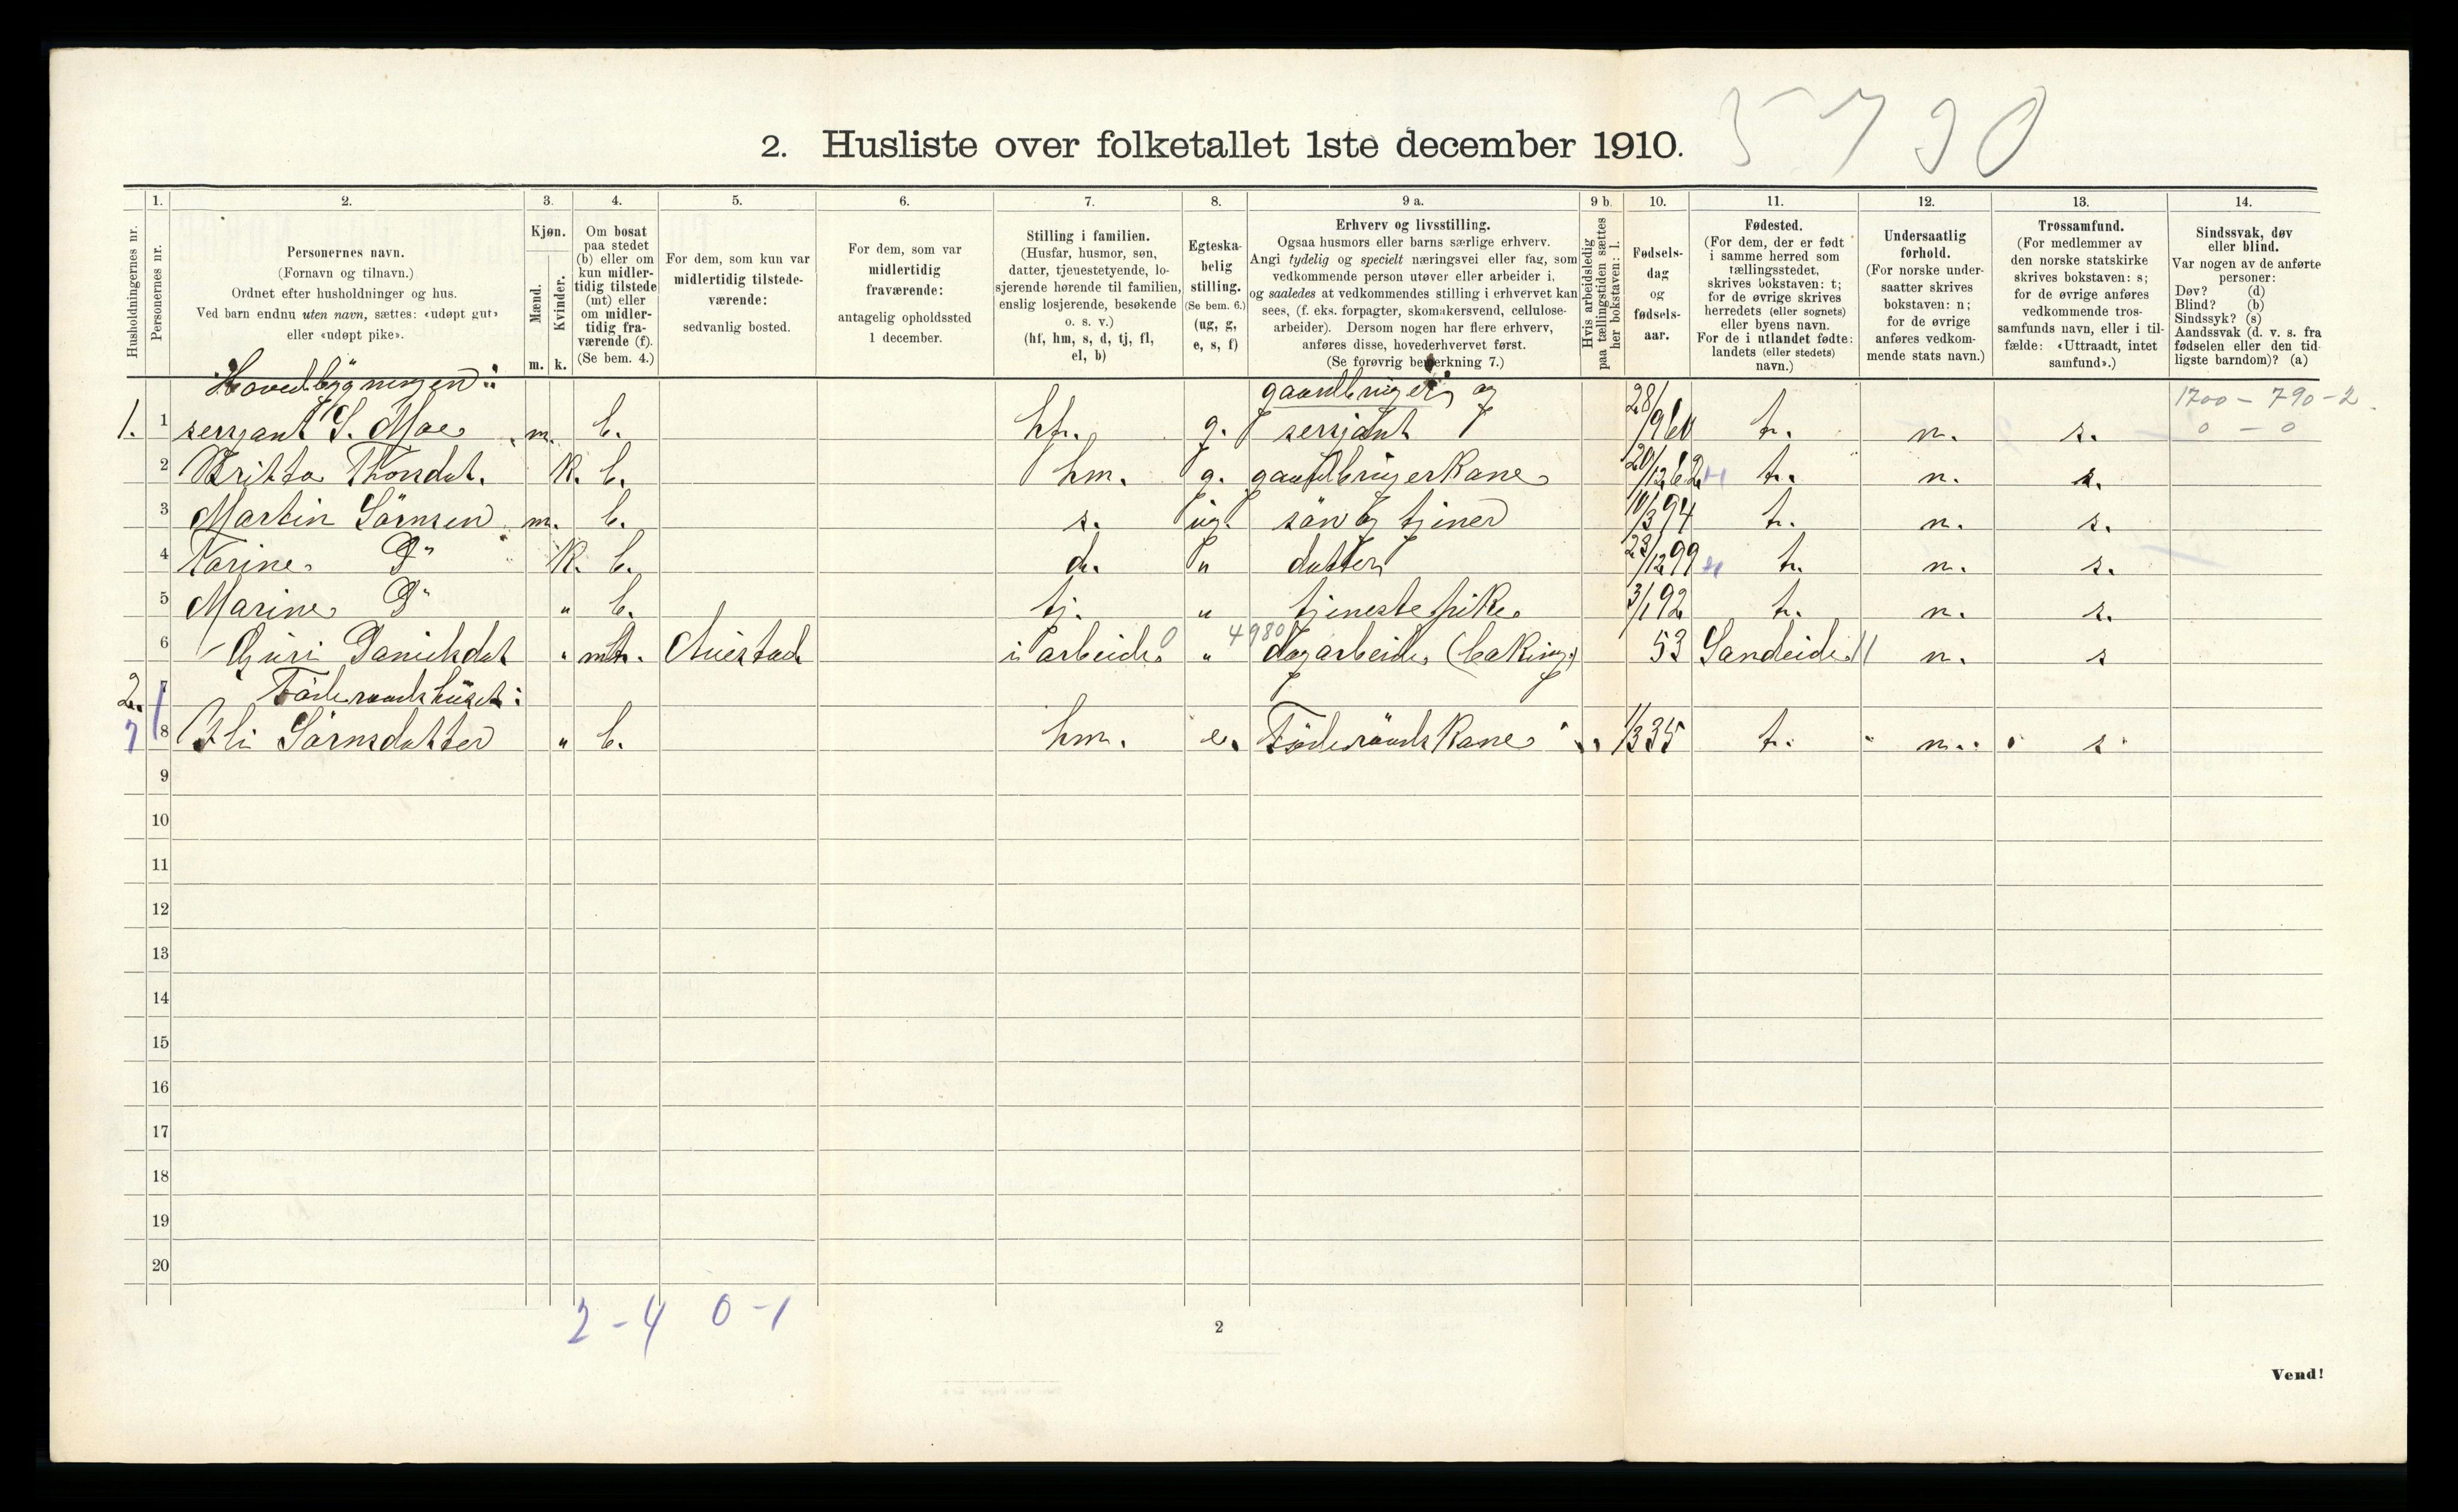 5790
2. Husliste over folketallet 1ste december 1910.
Husholdningernes nr.
1.
Personernes nr.
2.
Personernes navn.
(Fornavn og tilnavn.)
Ordnet efter husholdninger og hus.
Ved barn endnu uten navn, sættes: «udøpt gut»
eller «udøpt pike».
3.
Kjøn.
Mænd.
Kvinder.
m. k.
4.
Om bosat
paa stedet
(b) eller om
kun midler-
tidig tilstede
(mt) eller
om midler-
tidig fra-
værende (f).
(Se bem. 4.)
5.
For dem, som kun var
midlertidig tilstede-
værende:
sedvanlig bosted.
6.
For dem, som var
midlertidig
fraværende:
antagelig opholdssted
1 december.
7.
Stilling i familien.
(Husfar, husmor, søn,
datter, tjenestetyende, lo-
sjerende hørende til familien,
enslig losjerende, besøkende
o. s. v.)
(hf, hm, s, d, tj, fl,
el, b)
8.
Egteska-
belig
stilling.
(Se bem. 6.)
(ug, g,
e, s, f)
9 a.
Erhverv og livsstilling.
Ogsaa husmors eller barns særlige erhverv.
Angi tydelig og specielt næringsvei eller fag, som
vedkommende person utøver eller arbeider i,
og saaledes at vedkommendes stilling i erhvervet kan
sees, (f. eks. forpagter, skomakersvend, cellulose-
arbeider). Dersom nogen har flere erhverv,
anføres disse, hovederhvervet først.
(Se forøvrig bemerkning 7.)
9 b.
Hvis arbeidsledig
paa tællingstiden sættes
her bokstaven: l.
10.
Fødsels-
dag
og
fødsels-
aar.
11.
Fødested.
(For dem, der er født
i samme herred som
tællingsstedet,
skrives bokstaven: t;
for de øvrige skrives
herredets (eller sognets)
eller byens navn.
For de i utlandet fødte:
landets (eller stedets)
navn.)
12.
Undersaatlig
forhold.
(For norske under-
saatter skrives
bokstaven: n;
for de øvrige
anføres vedkom-
mende stats navn.)
13.
Trossamfund.
(For medlemmer av
den norske statskirke
skrives bokstaven: s;
for de øvrige anføres
vedkommende tros-
samfunds navn, eller i til-
fælde: «Uttraadt, intet
samfund».)
14.
Sindssvak, døv
eller blind.
Var nogen av de anførte
personer:
Døv? (d)
Blind? (b)
Sindssyk? (s)
Aandssvak (d. v. s. fra
fødselen eller den tid-
ligste barndom)? (a)
Hovedbygningen: gaardbruger og 1700 - 790 - 2
1. 1 serjant S. Moe m. b. hf. g. serjant 28/9 60 t. n. s. 0 - 0
2 Britta Thorsdat. k. b. hm. g. gaardbrugerkane 20/12 62 t. n. s.
3 Martin Sörnsen m. b. s. ug. sön og tjener 10/3 94 t. n. s.
4 Karine Do k. b. d. " datter 23/12 99 t. n. s.
5 Marine Do " b. tj. " tjenestepike 3/1 92 t. n. s.
6 Guri Danielsdat " mt. Auestad i arbeide " 4980 dagarbeide (baking) 53 Sandeide n. s
2. 7 Föderaadshuset:
8 Ili Sörnsdatter " b. hm. e. Föderaadskane 1/3 35 t. n. s.
9
10
11
12
13
14
15
16
17
18
19
20
2 - 4 0 - 1
2
Vend!